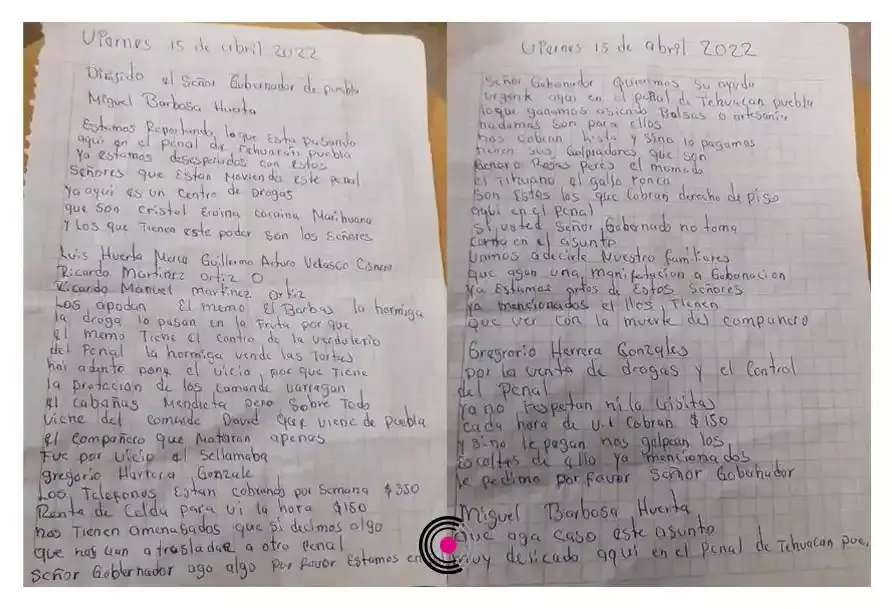 Viernes 15 de abril 2022
Dirigido al Señor Gobernador de puebla
Miguel Barbosa Huerta
Estamos Reportando lo que Esta pasando
aqui en el penal de Tehuacan puebla
Ya estamos desesperados con estos
Señores que Estan Moviendo este penal
Ya aqui es un Centro de Drogas
que son cristal Eroina cocaina Marihuana
y Los que Tienen este poder son los Señores
Luis Huerta Merca Guillermo Arturo Velasco Cisnero
Ricardo Martinez Ortiz O
Ricardo Manuel martinez Ortiz
Los apodan El memo El Barbas la hormiga
la droga lo pasan en la Fruta por que
El memo Tiene el contro de la verduleria
del Penal la hormiga vende las Tortas
hai adento pone el vicio por que Tiene
la proteccion de los comande barragan
El cabañas Mendieta pero Sobre Todo
Viene del comande David que viene de Puebla
El compañero que Mataran apenas
Fue por vicio al Sellamaba
gregorio Harrera Gonzale
Los Telefonos Estan cobrando por Semana $350
Renta de Celda para vi la hora $150
nos Tienen amenasados que si decimos algo
que nos van a trasladar a otro penal
Señor Gobernador ago algo por favor Estamos en
Viernes 15 de abril 2022
Señor Gobonador Queremos Su ayuda
urgente aqui en el peñal de Tehuacan puebla
loque ganamos asiendo Bolsas o artesania
nadamas son para ellos
nos cobran lista y sino lo pagamos
tienen sus Golpiadores que son
Renaro Rosas Peres el momado
El Tihuano el gallo ronco
Son Estos los que Cobran derecho de piso
aqui en el penal
si usted Señor Gobernado no toma
carta en el asunto
Vamos adecirle Nuestro familiares
que agan una manifetacion a Gobonacion
Ya Estamos artos de Estos Señores
ya mencionados el llos Tienen
que ver con la muerte del companero
Gregrorio Herrera Gonzales
por la venta de drogas y el Control
del Penal
Ya no respetan ni la visitas
cada hora de v.i Cobran $150
y sino le pagan nos golpean los
Escoltas de ello ya mencionados
le pedimo por favor Señor Gobernador
Miguel Barbosa Huerta
Que aga caso este asunto
Muy delicado aqui en el Penal de Tehuacan pue.